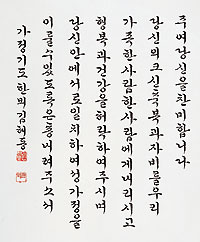 주여당신을찬미합니다
당신의크신축복과자비를우리
가족한사람한사람에게내리시고
행복과건강을허락하여주시며
당신안에서로일치하여성가정을
이룰수있도록은총내려주소서
가정기도